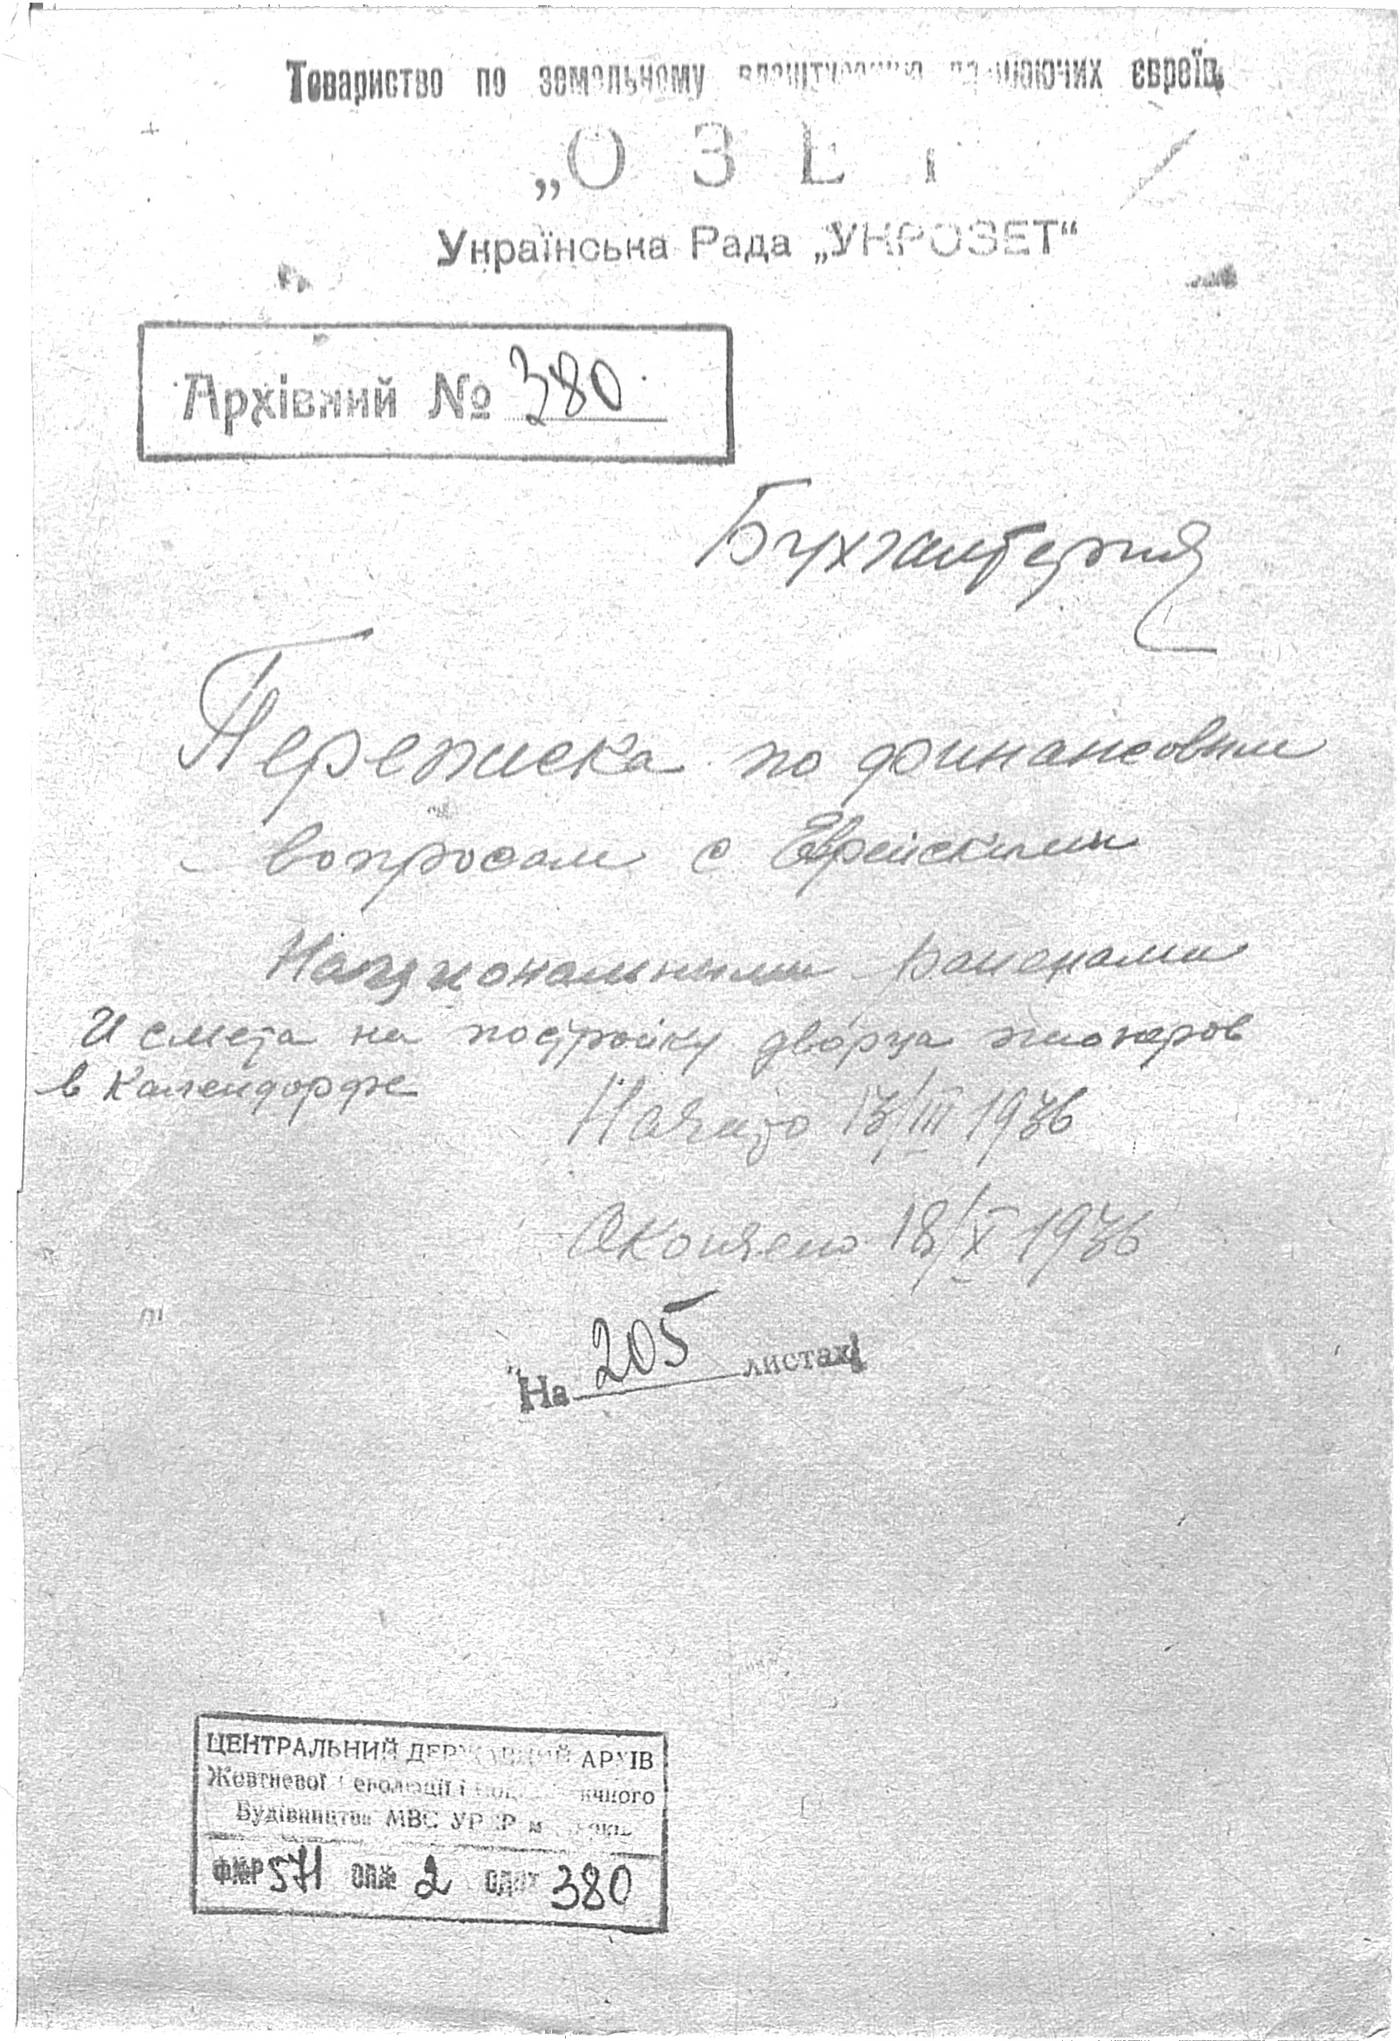 Товариство по земельному влаштуванню працюючих євреїв
„О З Е Т
Українська Рада „УКРОЗЕТ“
Архівний № 380
Бухгалтерия
Переписка по финансовым
вопросам с Еврейскими
Национальными Районами
И смета на постройку дворца пионеров
в Календорфе
Начато 13/III 1936
Окончено 18/X 1936
На 205 листах
ЦЕНТРАЛЬНИЙ ДЕРЖАВНИЙ АРХІВ
Жовтневої революції і соціалістичного
Будівництва МВС УРСР м. Харків
Ф№Р 571 оп№ 2 од.зб 380